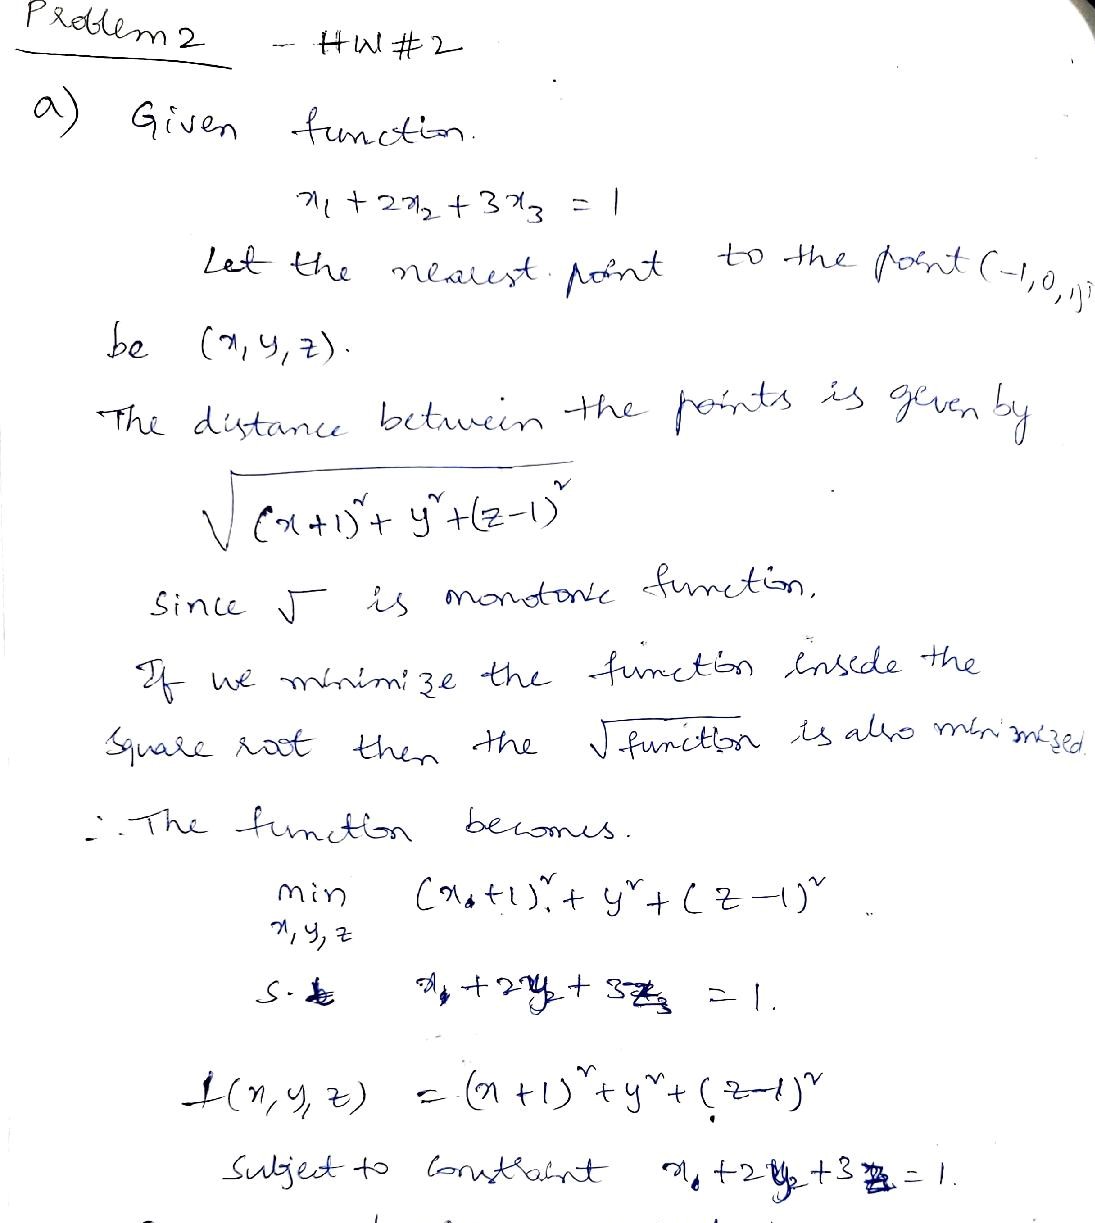 Problem 2 - HW # 2
a) Given function.
x₁ + 2x₂ + 3x₃ = 1
Let the nearest point to the point (-1,0,1)
be (x, y, z).
The distance between the points is given by
√((x+1)² + y² + (z-1)²)
Since √ is monotonic function,
If we minimize the function inside the
square root then the √function is also minimized.
∴ The function becomes.
min (x+1)² + y² + (z-1)²
x, y, z
s.t x + 2y + 3z = 1.
f(x, y, z) = (x+1)² + y² + (z-1)²
Subject to constraint x + 2y + 3z = 1.